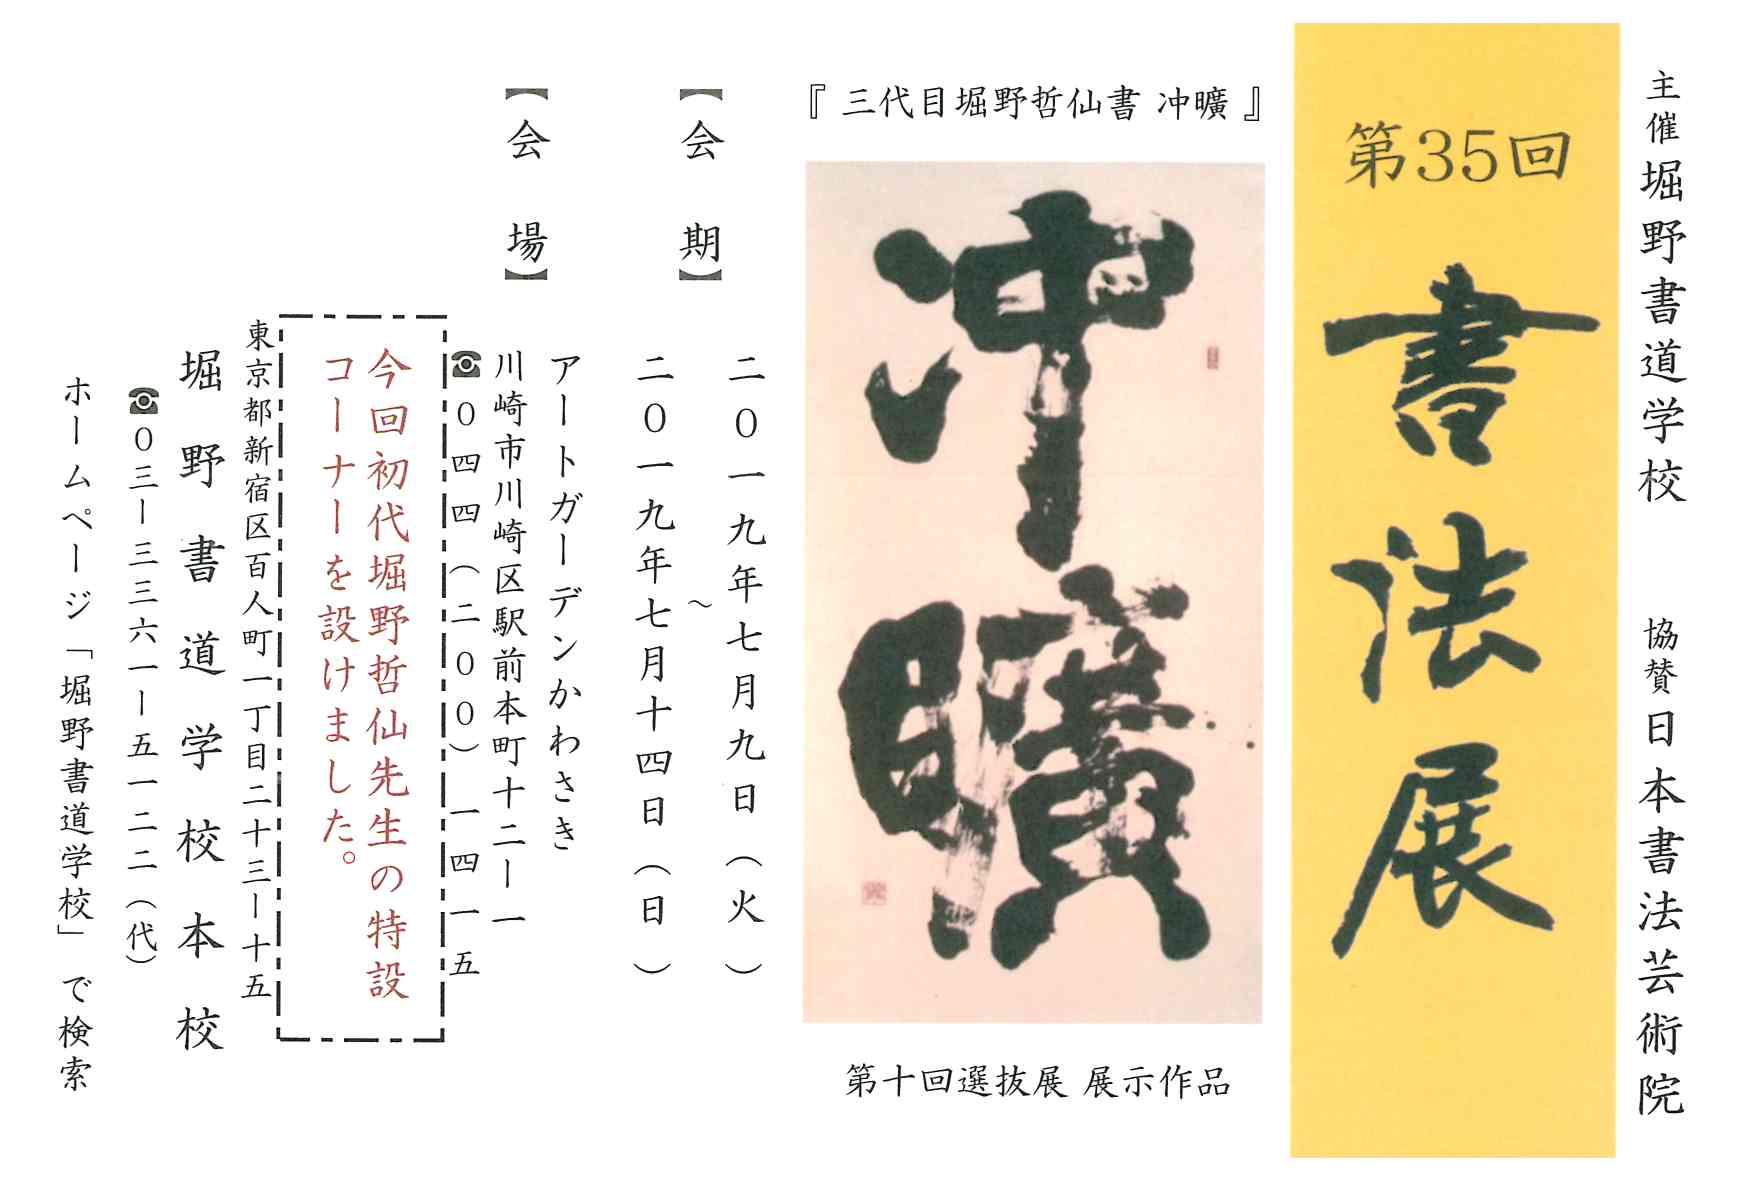 主催 堀野書道学校 協賛 日本書法芸術院
第35回
書法展
『 三代目堀野哲仙書 冲曠 』
冲曠
第十回選抜展 展示作品
【会 期】
二〇一九年七月九日(火)
~
二〇一九年七月十四日(日)
【会 場】
アートガーデンかわさき
川崎市川崎区駅前本町十二ー一
☎〇四四(二〇〇)一四一五
今回初代堀野哲仙先生の特設
コーナーを設けました。
東京都新宿区百人町一丁目二十三ー十五
堀野書道学校本校
☎〇三ー三三六一ー五一二二(代)
ホームページ「堀野書道学校」で検索